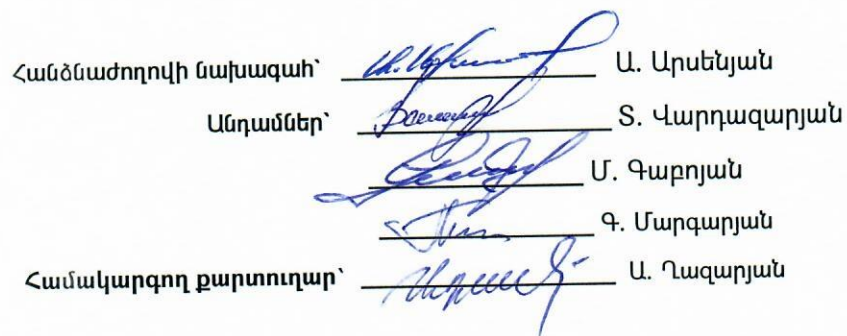 Հանձնաժողովի նախագահ՝ Ա. Արսենյան
Անդամներ՝ Տ. Վարդազարյան
Մ. Գաբոյան
Գ. Մարգարյան
Համակարգող քարտուղար՝ Ա. Ղազարյան